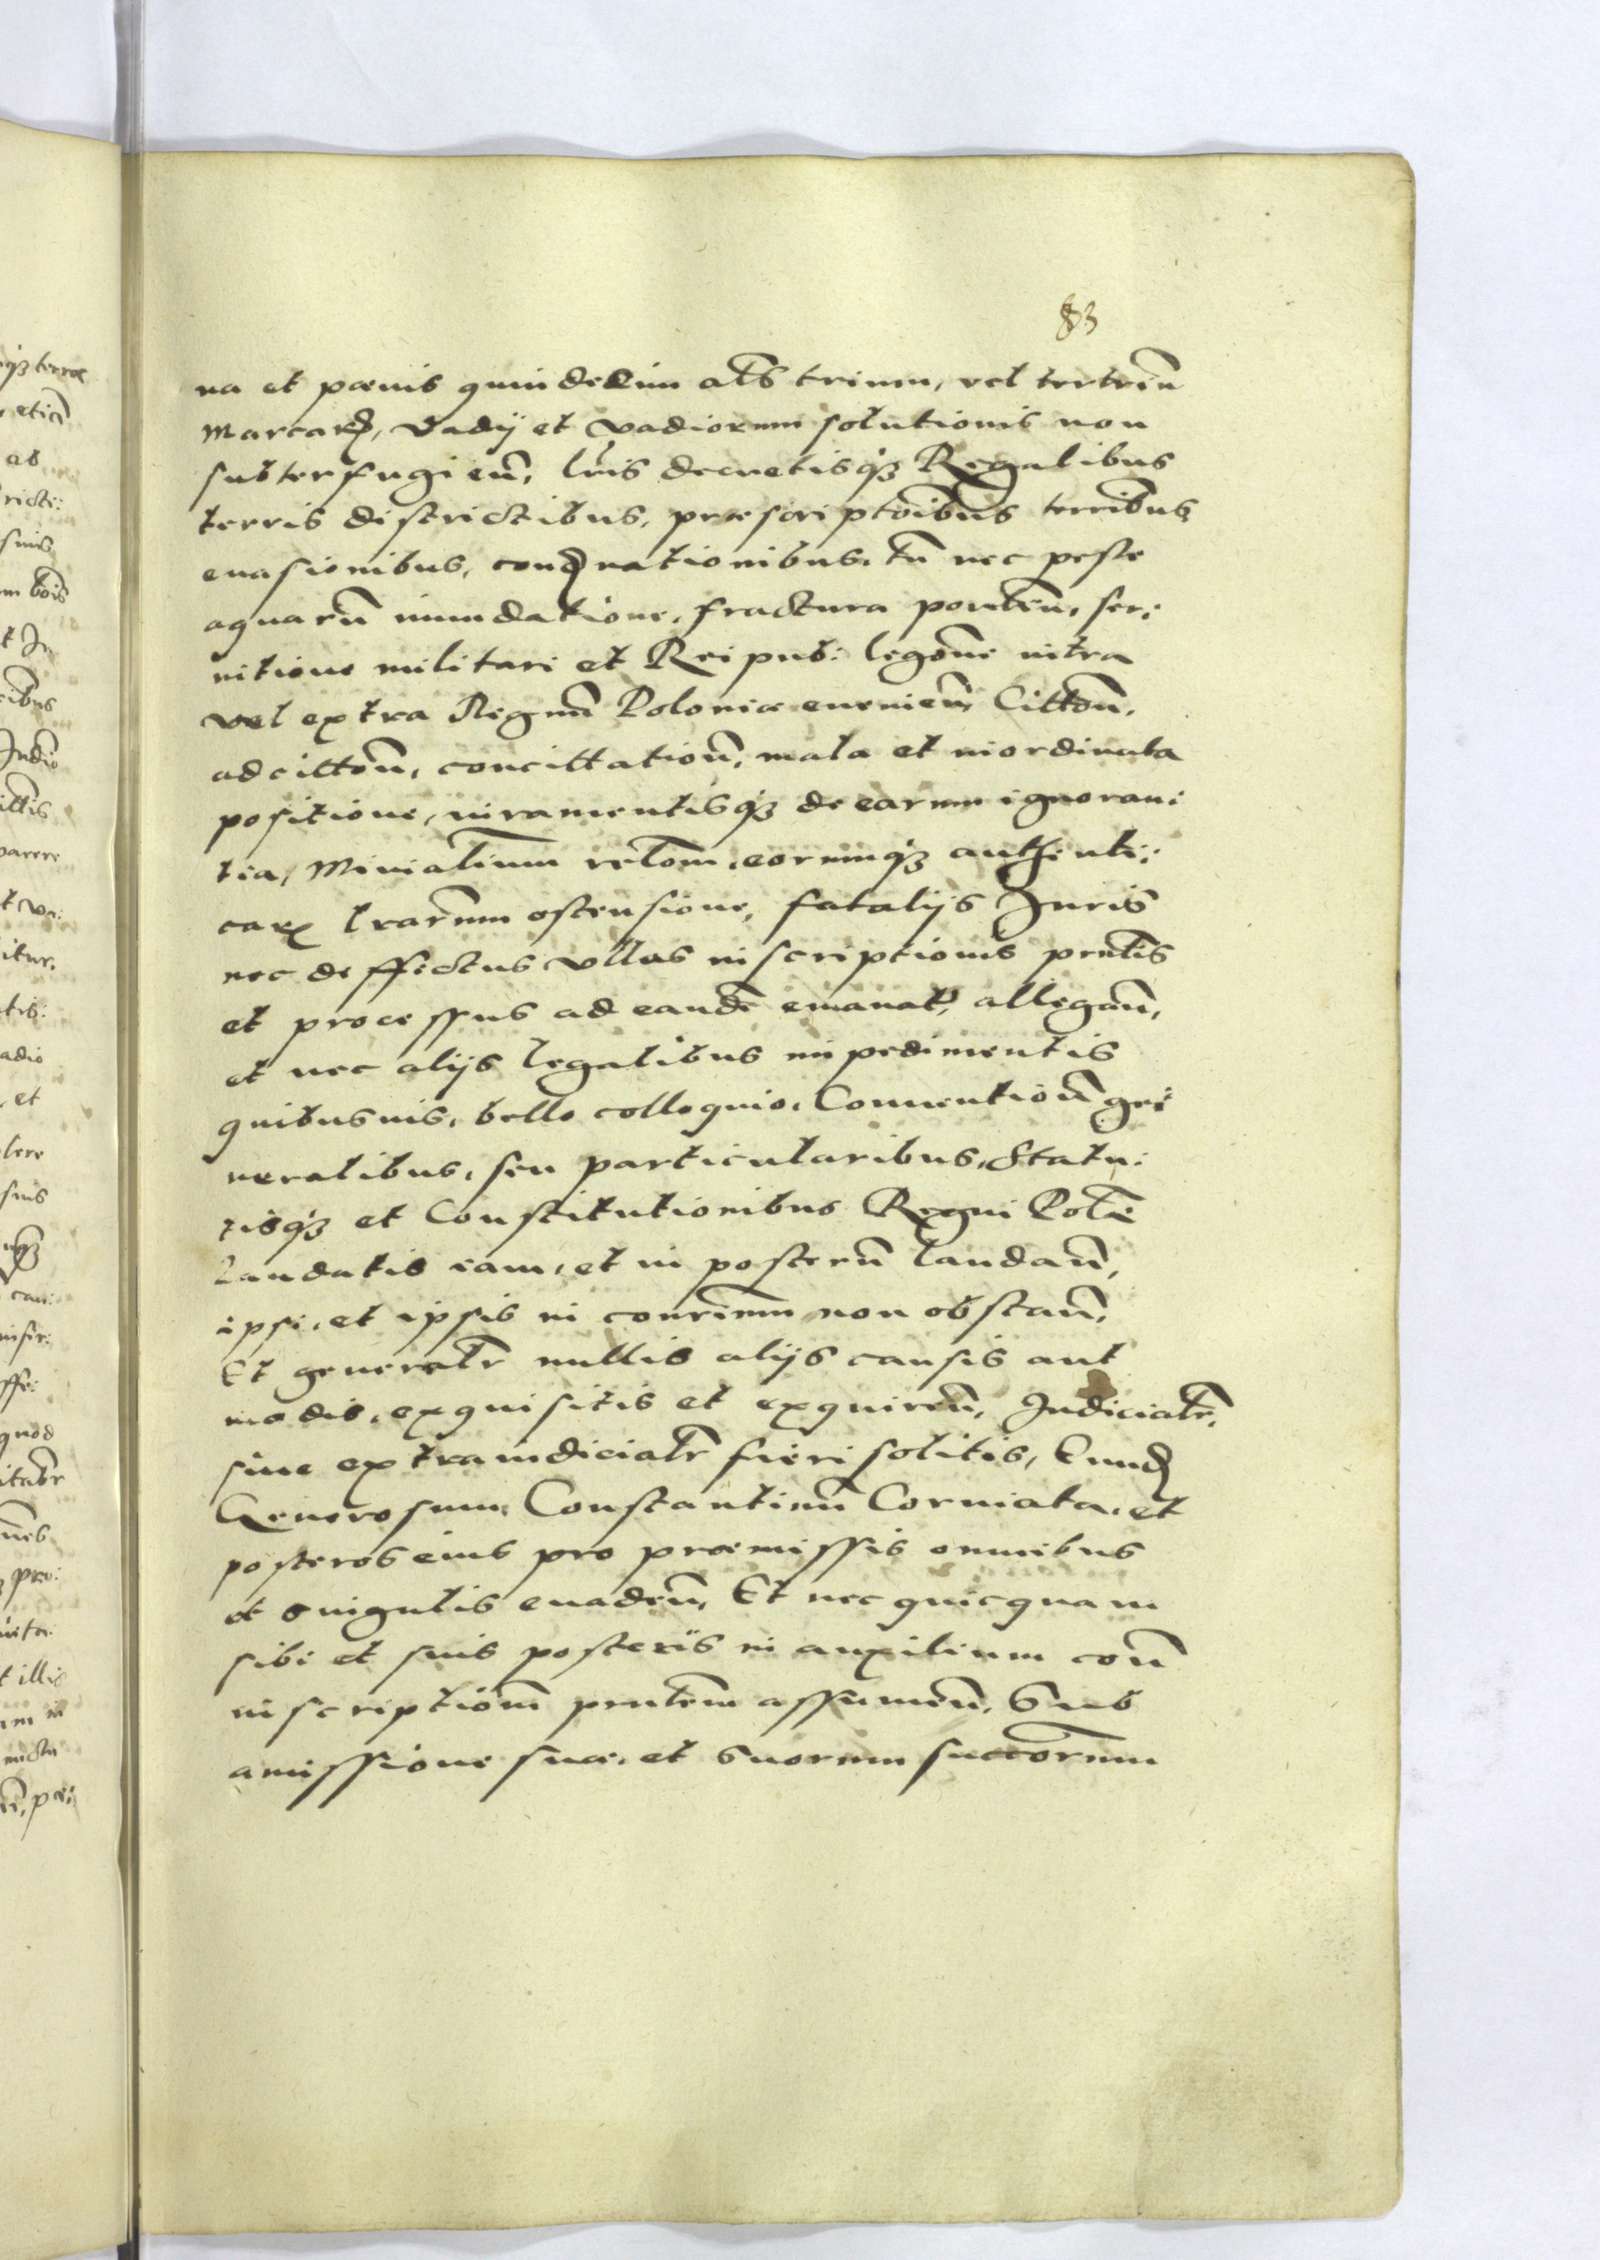 83
na et pœnis quindecim als trium, vel tertriũ
Marcarũ, Vadij et vadiorum solutionis non
subterfugieñ, lrĩs decretisq3 Regalibus
terris districtibus, præscriptõibus terribus
euasionibus, condnationibus, tñ nec peste
aquarũ inundatione, fractura pontiũ, ser:
uitione militari et Reipub: legõne intra
vel extra Regnũ Poloniæ euenieñ, Cittõñ,
adcittõñ, concittationũ, mala et inordinata
positione, iuramentisq3 de earum ignoran:
tia, Minialĩum relõm, eorumq3 authenti:
car lrarum ostensione, fatalijs Iuris
nec deffectus vllas inscriptionis pnntis
et processus ad eandẽ emanat, allegañ,
et nec alijs legalibus impedimentis
quibusuis, bello colloquio, Conuentioñ ge:
neralibus, seu particularibus, Statu:
tisq3 et Constitutionibus Regni Polõe
Laudatis iam, et in posterũ laudañ,
ipsi, et ipsis in conrium non obstañ,
Et generalr nullis alijs causis aut
modis, exquisitis et exquireñ, Iudicialr,
siue extraiudicialr fieri solitis, Eund
Generosum, Constantinũ Corniata, et
posteros eius pro præmissis omnibus
et singulis euadeñ, Et nec quicquam
sibi et suis posteris in auxilium coñ
inscriptionẽ pntem assumeñ, Sub
amissione suæ, et suorum succorum